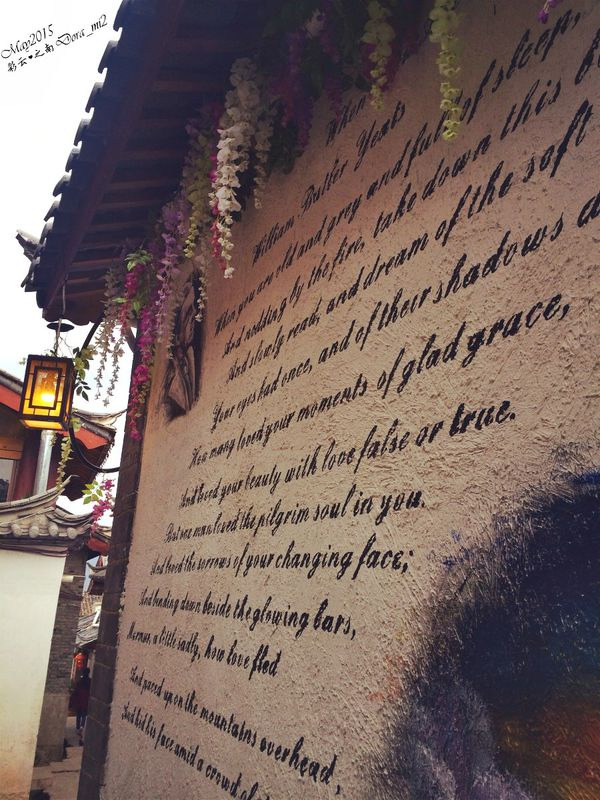 May2015
彩云♥之南 Dora_mi2
When
William Butler Yeats
When you are old and grey and full of sleep,
And nodding by the fire, take down this
And slowly read, and dream of the soft
Your eyes had once, and of their shadows d
How many loved your moments of glad grace,
And loved your beauty with love false or true.
But one man loved the pilgrim soul in you.
And loved the sorrows of your changing face;
And bending down beside the glowing bars,
Murmur, a little sadly, how love fled
And paced upon the mountains overhead,
And hid his face amid a crowd of